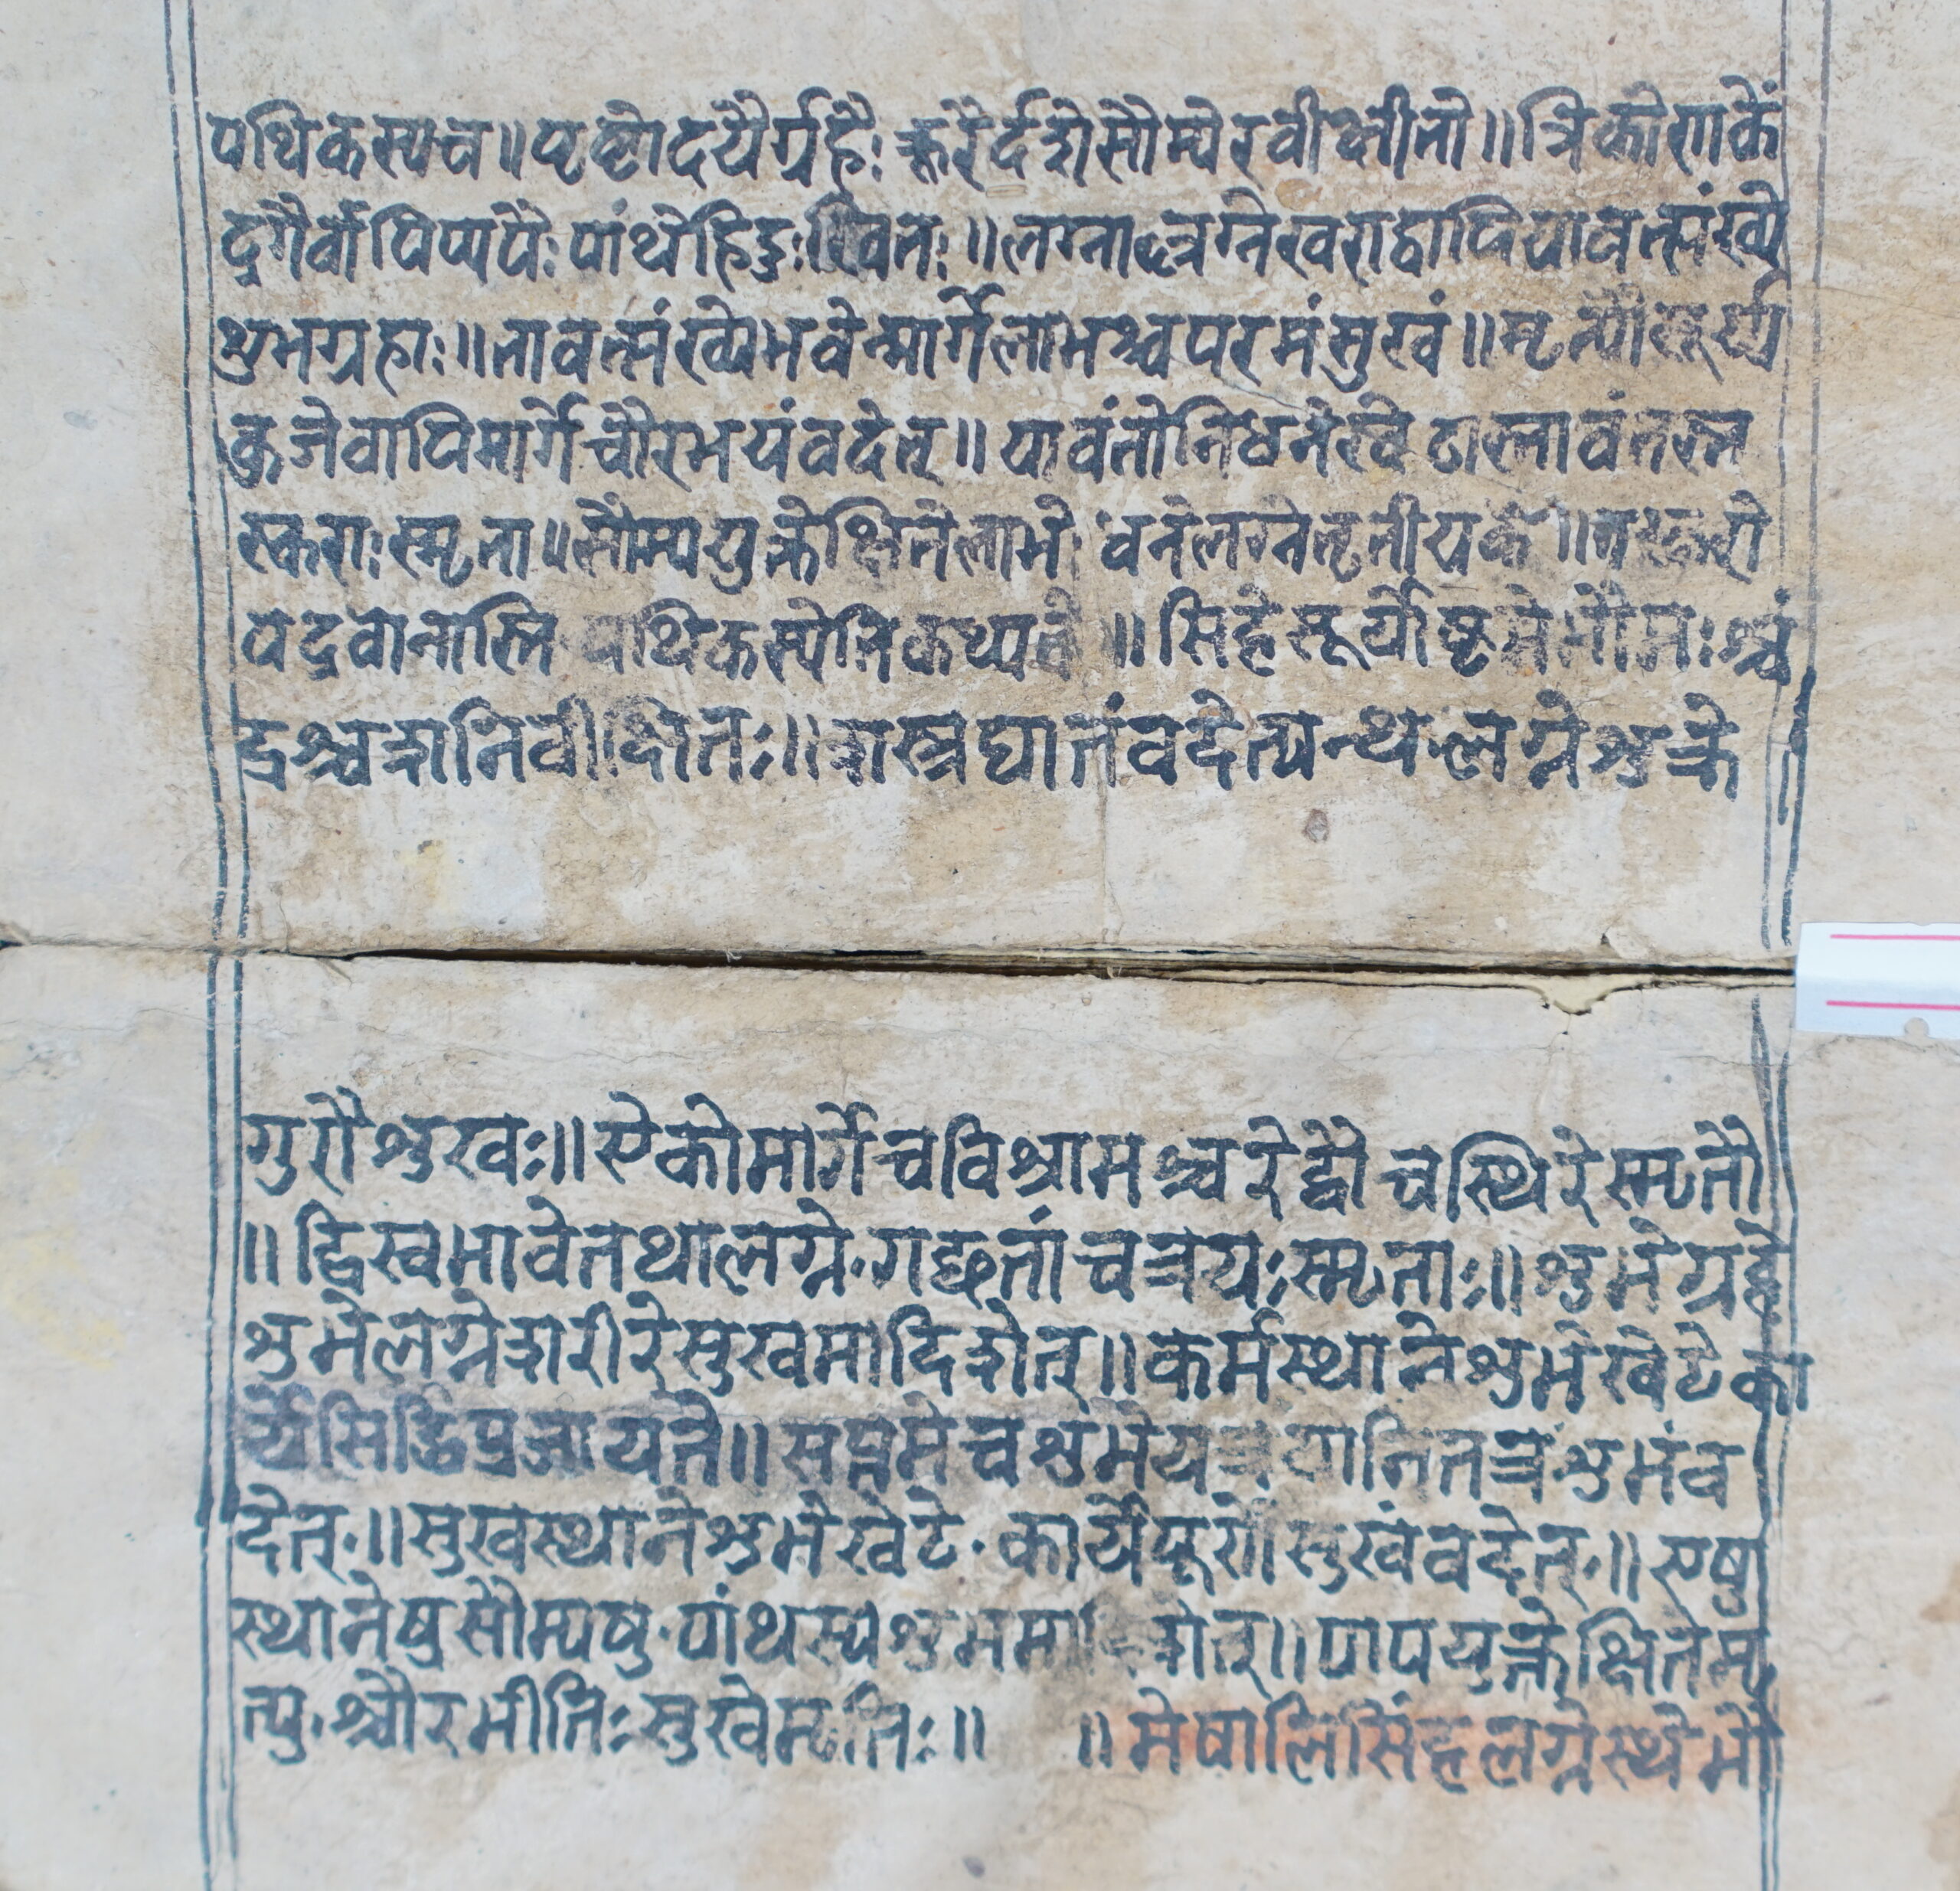 पथिकस्यच॥पृष्टोदयैर्ग्रहैः क्रूरैर्दृशेसौम्येरवीक्षीतो॥त्रिकोणकें
द्रगैर्वापिपापैः पांथेहिदुःखितः॥लग्नाल्लग्नेस्वराद्वापियावत्संख्ये
शुभग्रहाः॥तावत्संख्येभवेन्मार्गेलाभश्चपरमंसुखं॥मृत्यौसूर्य्ये
कुजेवापिमार्गेचौरभयंवदेत्॥ यावंतोनिधनेखेटास्तावंतस्त
स्कराःस्मृता॥सौम्ययुक्तेक्षितेलाभे धनेलग्नेतृतीयके॥तस्करो
पद्रवोनास्ति पथिकस्येतिकथ्यते॥सिंहेसूर्योष्टमेभौमःश्चं
द्रश्चशनिवीक्षितः॥शस्त्रघातंवदेत्पन्थ लग्नेशुक्रे
गुरौशुखः॥एकोमार्गेचविश्रामश्चरेद्वौचस्थिरेस्मृतौ
॥द्विस्वभावेतथालग्ने गछतांचत्रयःस्मृताः॥शुभेग्रहे
शुभेलग्नेशरीरेसुखमादिशेत्॥कर्मस्थानेशुभेखेटेका
र्येसिद्धिप्रजायते॥सप्तमेचशुभेयत्रयातितत्रशुभंव
देत्॥सुखस्थानेशुभेखेटे कार्येपूर्णेसुखंवदेत्॥एषु
स्थानेषुसौम्यषु पांथस्यशुभमादिशेत्॥पापयुक्तेक्षितेमृ
त्यु श्चौरभीतिःसुखेमृतिः॥ ॥मेषालिसिंहलग्नेस्थेभौ